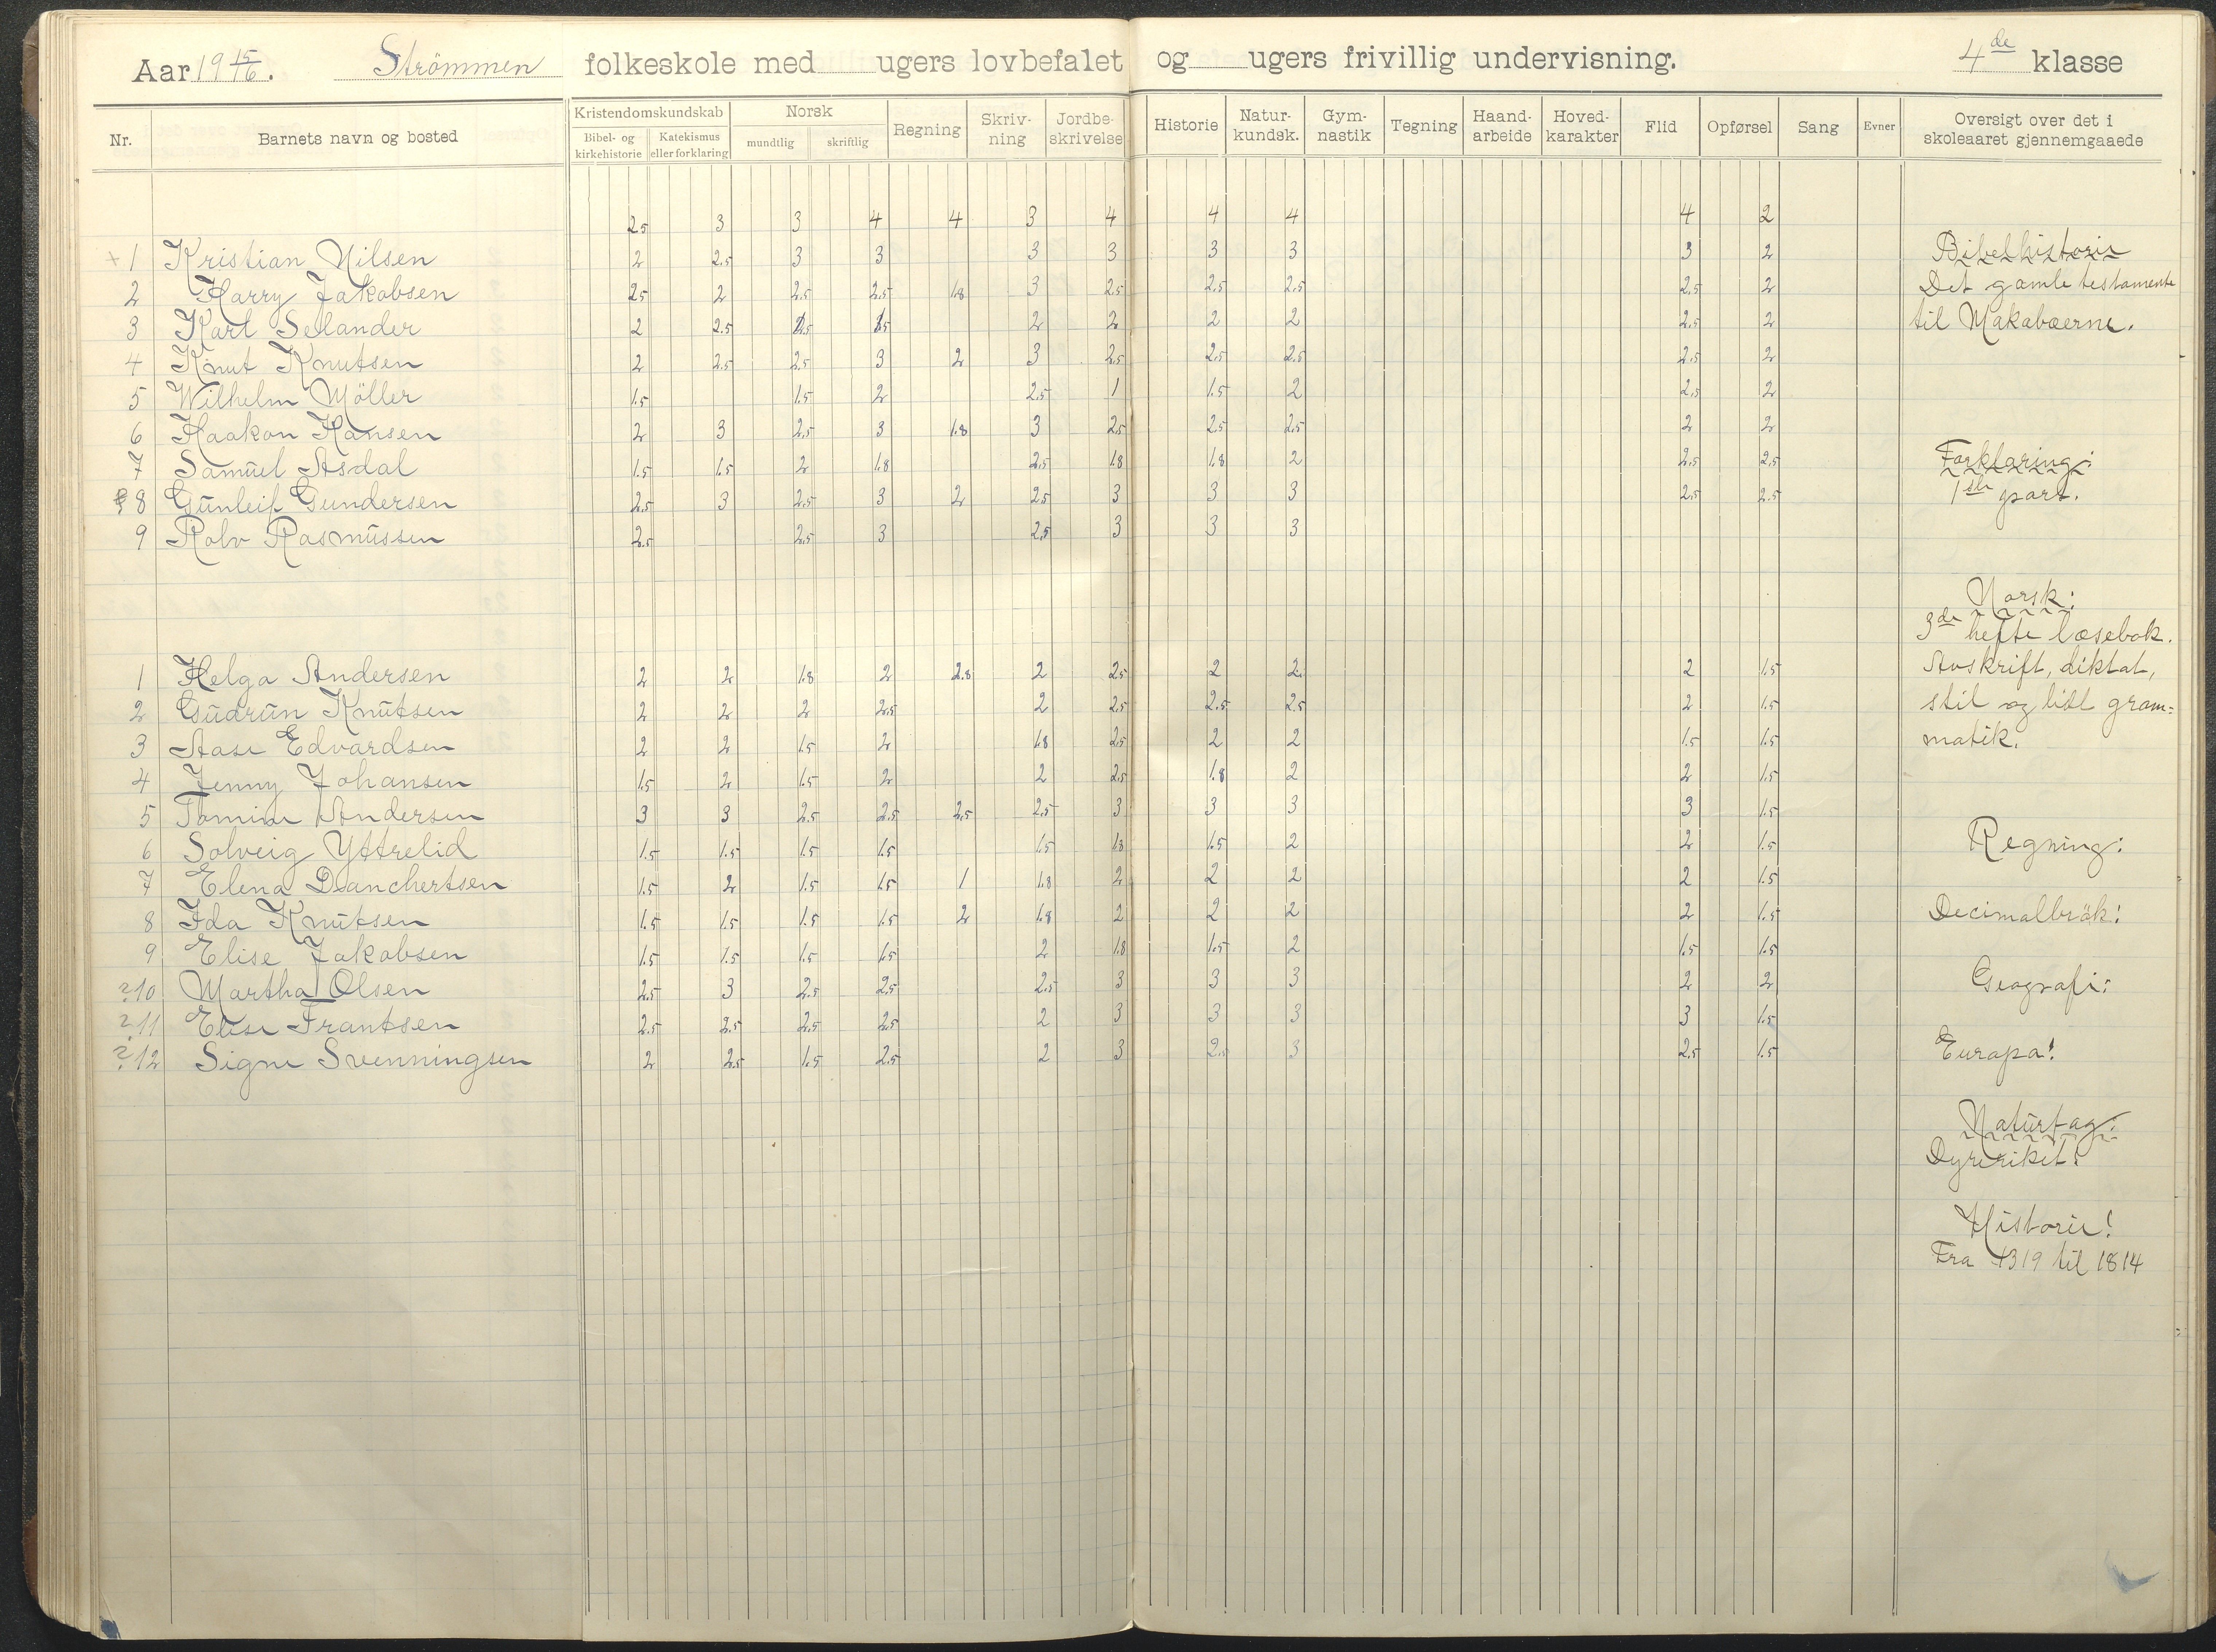 Aar 19 15/16. Strömmen folkeskole med ugers lovbefalet og ugers frivillig undervisning. 4de klasse
Nr. Barnets navn og bosted
Kristendomskundskab Norsk Regning Skriv-ning Jordbe-skrivelse Historie Natur-kundsk. Gym-nastik Tegning Haand-arbeide Hoved-karakter Flid Opførsel Sang Evner Oversigt over det i skoleaaret gjennemgaaede
Bibel- og kirkehistorie Katekismus eller forklaring mundtlig skriftlig
2.5 3 3 4 4 3 4 4 4 4 2
+ 1 Kristian Nilsen 2 2.5 3 3 3 3 3 3 3 2
2 Harry Jakobsen 2.5 2 2.5 2.5 1.8 3 2.5 2.5 2.5 2.5 2
3 Karl Selander 2 2.5 2 2 2 2 2.5 2
4 Knut Knutsen 2 2.5 2.5 3 2 3 2.5 2.5 2.5 2.5 2
5 Wilhelm Möller 1.5 1.5 2 2.5 1 1.5 2 2.5 2
6 Haakon Hansen 2 3 2.5 3 1.8 3 2.5 2.5 2.5 2 2
7 Samuel Asdal 1.5 1.5 2 1.8 2.5 1.8 1.8 2 2.5 2.5
8 Gunleif Gundersen 2.5 3 2.5 3 2 2.5 3 3 3 2.5 2.5
9 Rolv Rasmussen 2.5 2.5 3 2.5 3 3 3
1 Helga Andersen 2 2 1.8 2 2.8 2 2.5 2 2 2 1.5
2 Gudrun Knutsen 2 2 2 2.5 2 2.5 2.5 2.5 2 1.5
3 Aase Edvardsen 2 2 1.5 2 1.8 2.5 2 2 1.5 1.5
4 Jenny Johansen 1.5 2 1.5 2 2 2.5 1.8 2 2 1.5
5 Tomine Andersen 3 3 2.5 2.5 2.5 2.5 3 3 3 3 1.5
6 Solveig Yttrelid 1.5 1.5 1.5 1.5 1.5 1.8 1.5 2 2 1.5
7 Elena Danchertsen 1.5 2 1.5 1.5 1 1.8 2 2 2 2 1.5
8 Ida Knutsen 1.5 1.5 1.5 1.5 2 1.8 2 2 2 2 1.5
9 Elise Jakobsen 1.5 1.5 1.5 1.5 2 1.8 1.5 2 1.5 1.5
? 10 Martha Olsen 2.5 3 2.5 2.5 2.5 3 3 3 2 2
? 11 Elise Frantsen 2.5 2.5 2.5 2.5 2 3 3 3 3 1.5
? 12 Signe Svenningsen 2 2.5 1.5 2.5 2 3 2.5 3 2.5 1.5
Bibelhistorie
Det gamle testamente
til Makabæerne.
Forklaring:
1ste part.
Norsk:
3de hefte læsebok.
Avskrift, diktat,
stil og litt gram=
matik.
Regning:
Decimalbrök!
Geografi:
Europa!
Naturfag:
Dyreriket!
Historie!
Fra 1319 til 1814